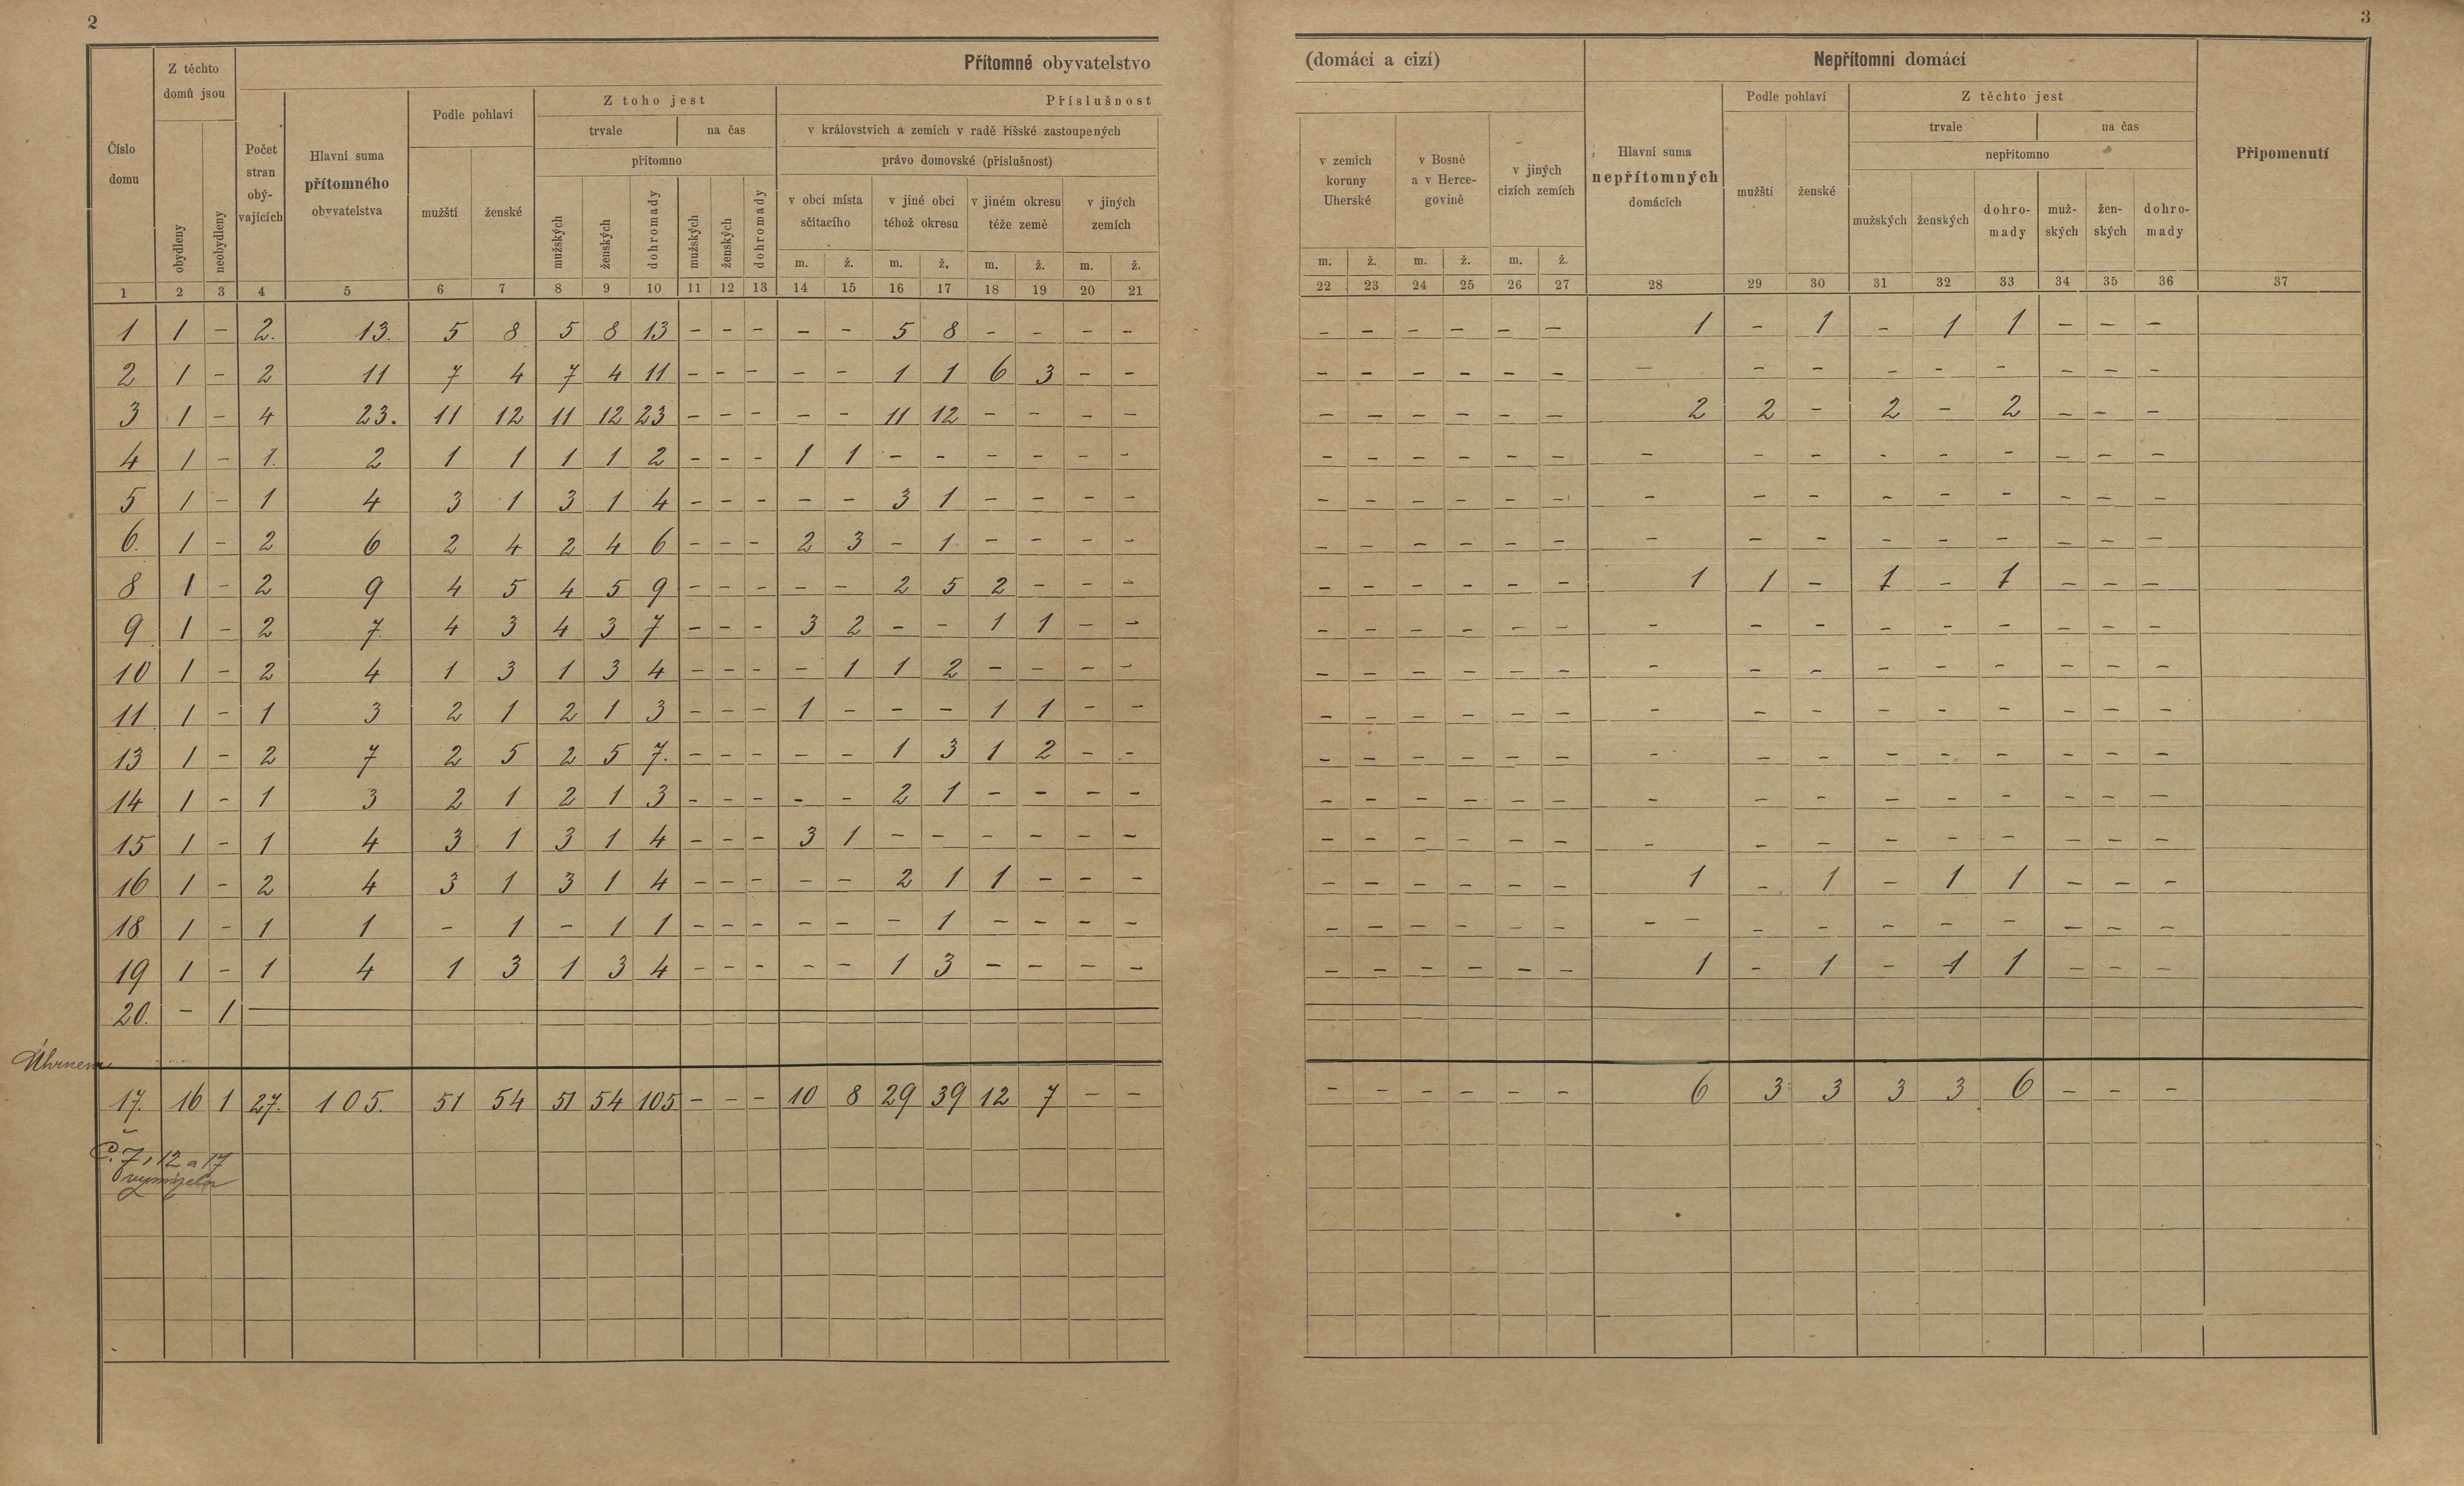 2
3
Číslo domu
Z těchto domů jsou
obydleny
neobydleny
Počet stran obý-vajících
Přítomné obyvatelstvo
(domácí a cizí)
Hlavní suma přítomného obyvatelstva
Podle pohlaví
mužští
ženské
Z toho jest
trvale
na čas
přítomno
mužských
ženských
dohromady
mužských
ženských
dohromady
Příslušnost
v královstvích a zemích v radě říšské zastoupených
právo domovské (příslušnost)
v obci místa sčítacího
v jiné obci téhož okresu
v jiném okresu téže země
v jiných zemích
m. ž. m. ž. m. ž. m. ž.
v zemích koruny Uherské
v Bosně a v Herce-govině
v jiných cizích zemích
m. ž. m. ž. m. ž.
Nepřítomní domácí
Hlavní suma nepřítomných domácích
Podle pohlaví
mužští
ženské
Z těchto jest
trvale
na čas
nepřítomno
mužských
ženských
dohro-mady
muž-ských
žen-ských
dohro-mady
Připomenutí
1 2 3 4 5 6 7 8 9 10 11 12 13 14 15 16 17 18 19 20 21 22 23 24 25 26 27 28 29 30 31 32 33 34 35 36 37
1 1 - 2. 13. 5 8 5 8 13 - - - - - 5 8 - - - - - - - - - - 1 - 1 - 1 1 - - -
2 1 - 2 11 7 4 7 4 11 - - - - - 1 1 6 3 - - - - - - - - - - - - - - - - -
3 1 - 4 23. 11 12 11 12 23 - - - - - 11 12 - - - - - - - - - - 2 2 - 2 - 2 - - -
4 1 - 1. 2 1 1 1 1 2 - - - 1 1 - - - - - - - - - - - - - - - - - - - - -
5 1 - 1 4 3 1 3 1 4 - - - - - 3 1 - - - - - - - - - - - - - - - - - - -
6. 1 - 2 6 2 4 2 4 6 - - - 2 3 - 1 - - - - - - - - - - - - - - - - - - -
8 1 - 2 9 4 5 4 5 9 - - - - - 2 5 2 - - - - - - - - - 1 1 - 1 - 1 - - -
9 1 - 2 7. 4 3 4 3 7 - - - 3 2 - - 1 1 - - - - - - - - - - - - - - - - -
10 1 - 2 4 1 3 1 3 4 - - - - 1 1 2 - - - - - - - - - - - - - - - - - - -
11 1 - 1 3 2 1 2 1 3 - - - 1 - - - 1 1 - - - - - - - - - - - - - - - - -
13 1 - 2 7 2 5 2 5 7. - - - - - 1 3 1 2 - - - - - - - - - - - - - - - - -
14 1 - 1 3 2 1 2 1 3 - - - - - 2 1 - - - - - - - - - - - - - - - - - - -
15 1 - 1 4 3 1 3 1 4 - - - 3 1 - - - - - - - - - - - - - - - - - - - - -
16 1 - 2 4 3 1 3 1 4 - - - - - 2 1 1 - - - - - - - - - 1 - 1 - 1 1 - - -
18 1 - 1 1 - 1 - 1 1 - - - - - - 1 - - - - - - - - - - - - - - - - - - - -
19 1 - 1 4 1 3 1 3 4 - - - - - 1 3 - - - - - - - - - - 1 - 1 - 1 1 - - -
20. - 1
Úhrnem
17. 16 1 27. 105. 51 54 51 54 105 - - - 10 8 29 39 12 7 - - - - - - - - 6 3 3 3 3 6 - - -
Č. 7, 12 a 17